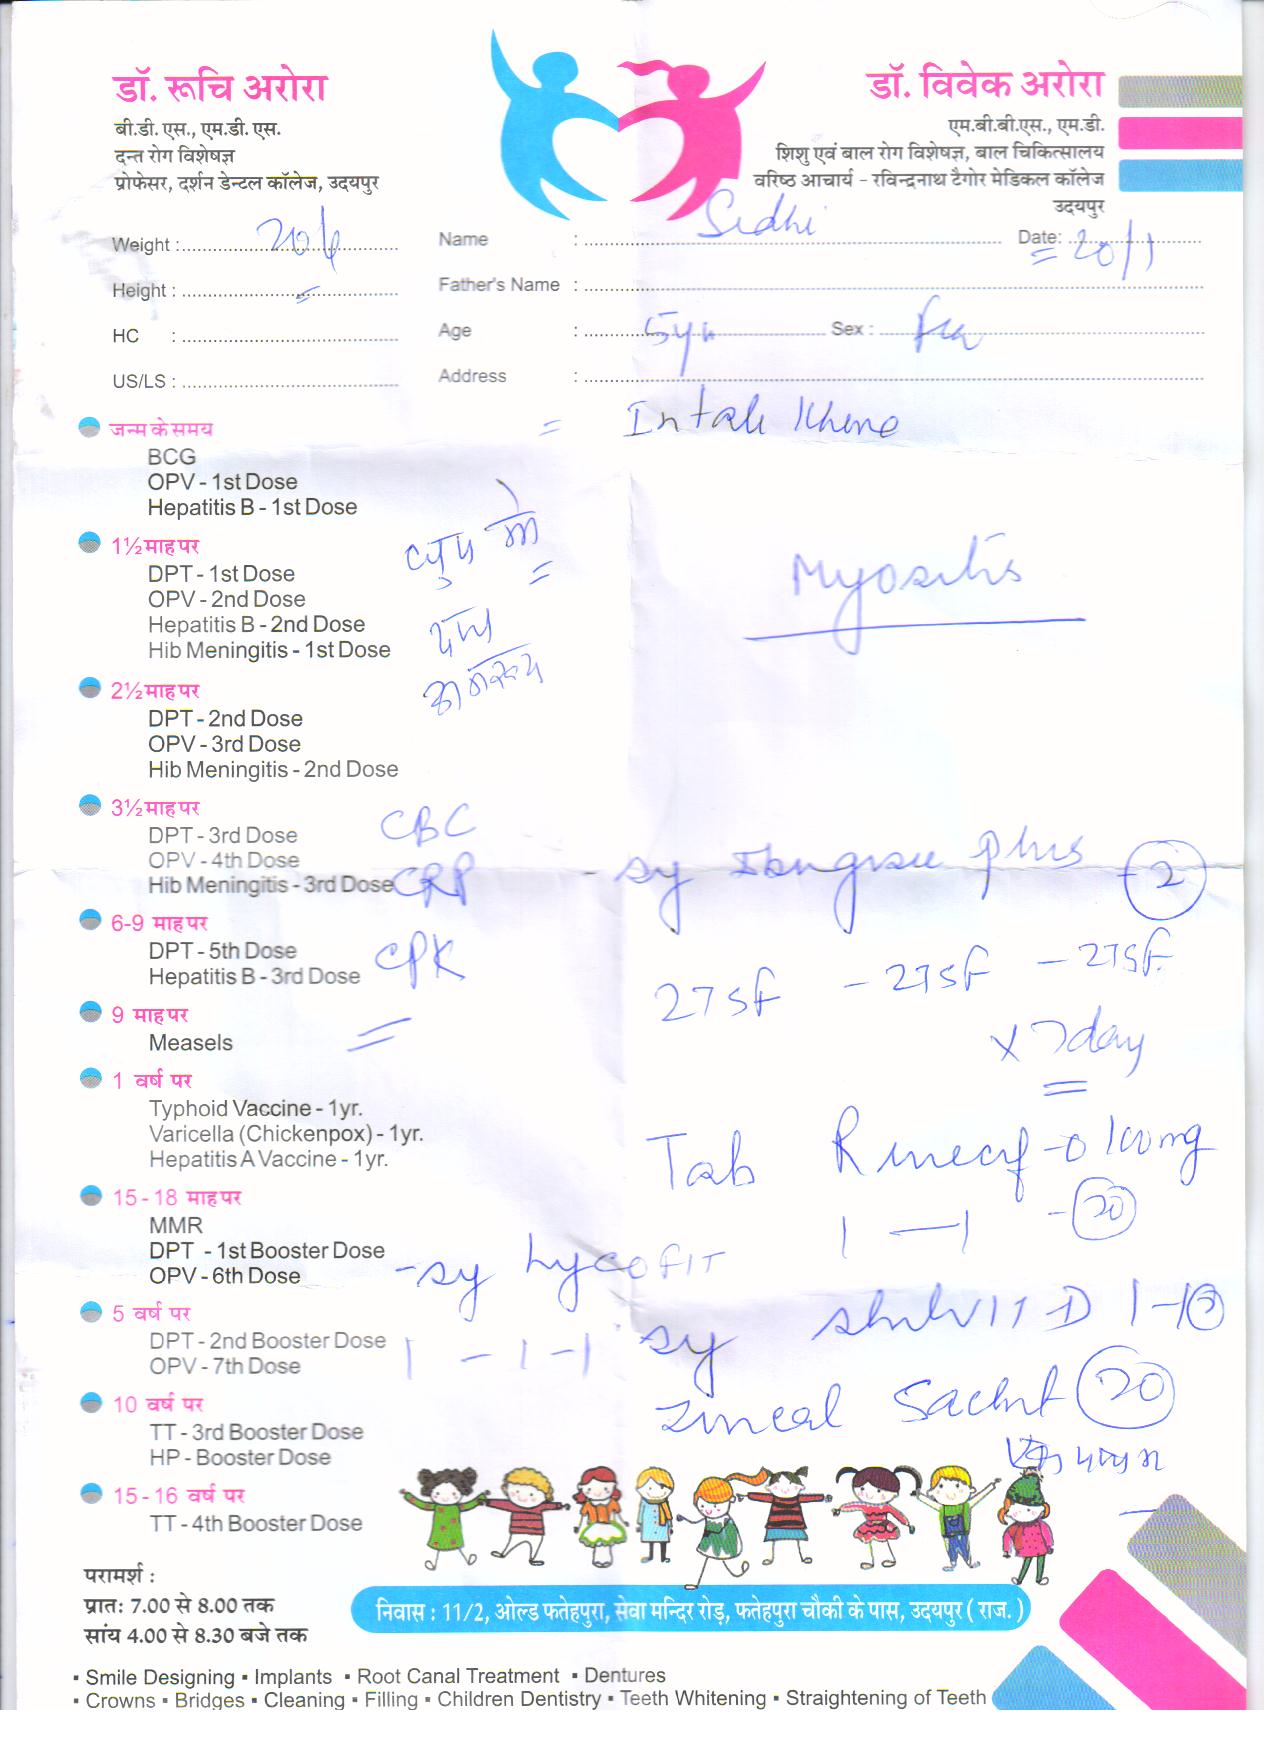 डॉ. रूचि अरोरा
बी.डी. एस., एम.डी. एस.
दन्त रोग विशेषज्ञ
प्रोफेसर, दर्शन डेन्टल कॉलेज, उदयपुर
डॉ. विवेक अरोरा
एम.बी.बी.एस., एम.डी.
शिशु एवं बाल रोग विशेषज्ञ, बाल चिकित्सालय
वरिष्ठ आचार्य - रविन्द्रनाथ टैगोर मेडिकल कॉलेज
उदयपुर
Weight :
Name : Sidhi Date: 20/1
Height :
Father's Name :
HC :
Age : 5yr Sex :
US/LS :
Address :
जन्म के समय
BCG
OPV - 1st Dose
Hepatitis B - 1st Dose
1½ माह पर
DPT - 1st Dose
OPV - 2nd Dose
Hepatitis B - 2nd Dose
Hib Meningitis - 1st Dose
2½ माह पर
DPT - 2nd Dose
OPV - 3rd Dose
Hib Meningitis - 2nd Dose
3½ माह पर
DPT - 3rd Dose
OPV - 4th Dose
Hib Meningitis - 3rd Dose
6-9 माह पर
DPT - 5th Dose
Hepatitis B - 3rd Dose
9 माह पर
Measels
1 वर्ष पर
Typhoid Vaccine - 1yr.
Varicella (Chickenpox) - 1yr.
Hepatitis A Vaccine - 1yr.
15 - 18 माह पर
MMR
DPT - 1st Booster Dose
OPV - 6th Dose
5 वर्ष पर
DPT - 2nd Booster Dose
OPV - 7th Dose
10 वर्ष पर
TT - 3rd Booster Dose
HP - Booster Dose
15 - 16 वर्ष पर
TT - 4th Booster Dose
CBC
CRP
CPK
Myositis
- sy plus 2
x 7 day
Tab 100mg
1 — 1 - 20
- sy Lycofit
1 - 1 - 1
sy
Sachet 20
परामर्श :
प्रातः 7.00 से 8.00 तक
सांय 4.00 से 8.30 बजे तक
निवास : 11/2, ओल्ड फतेहपुरा, सेवा मन्दिर रोड़, फतेहपुरा चौकी के पास, उदयपुर ( राज. )
▪ Smile Designing ▪ Implants ▪ Root Canal Treatment ▪ Dentures
▪ Crowns ▪ Bridges ▪ Cleaning ▪ Filling ▪ Children Dentistry ▪ Teeth Whitening ▪ Straightening of Teeth